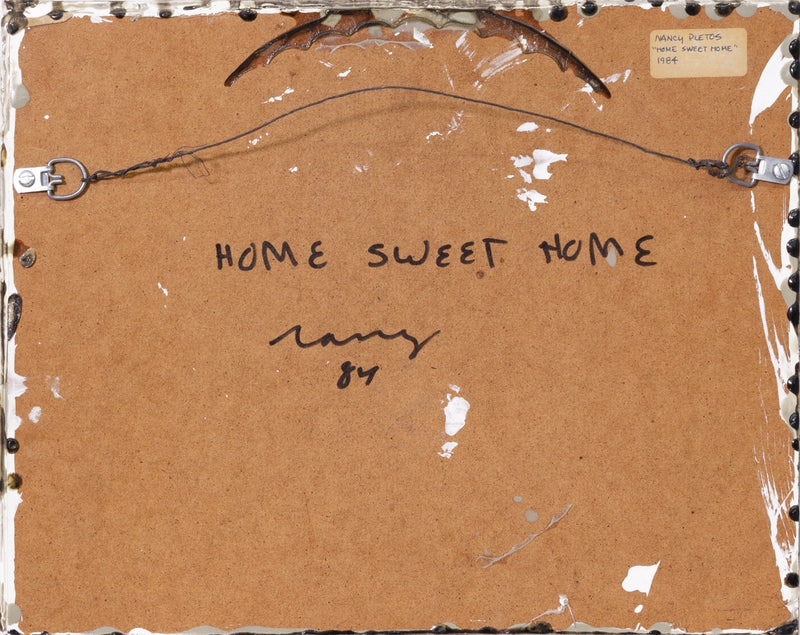 NANCY PLETOS
"HOME SWEET HOME"
1984
HOME SWEET HOME
Nancy
84